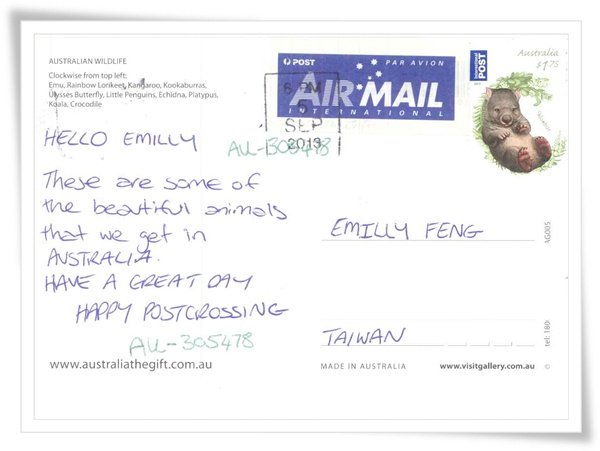 AUSTRALIAN WILDLIFE
Clockwise from top left:
Emu, Rainbow Lorikeet, Kangaroo, Kookaburras,
Ulysses Butterfly, Little Penguins, Echidna, Platypus,
Koala, Crocodile
POST PAR AVION
AIR MAIL
INTERNATIONAL
6 PM
5
SEP
2013
International
POST
Australia
$1.75
HELLO EMILLY
AU-305478
These are some of
the beautiful animals
that we get in
AUSTRALIA.
HAVE A GREAT DAY
HAPPY POSTCROSSING
AU-305478
EMILLY FENG
TAIWAN
www.australiathegift.com.au
MADE IN AUSTRALIA
www.visitgallery.com.au
©
AG005
tel: 180